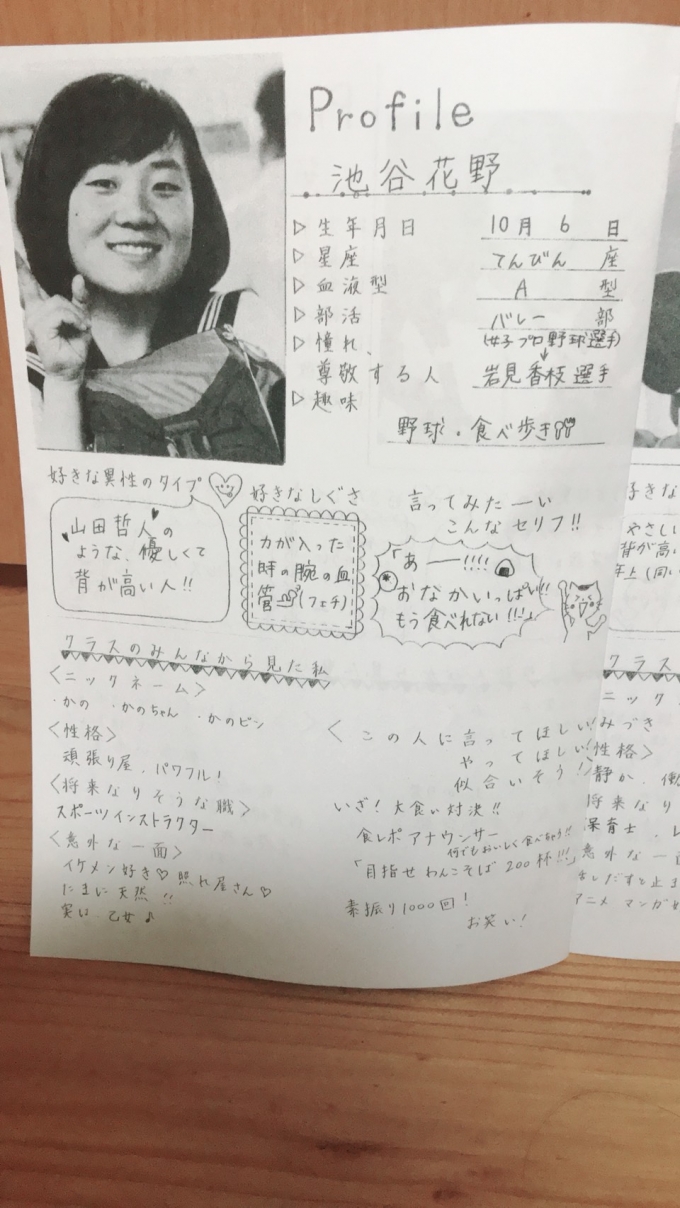 Profile
池谷花野
▷生年月日 10月 6 日
▷星座 てんびん 座
▷血液型 A 型
▷部活 バレー 部
▷憧れ、 (女子プロ野球選手)
尊敬する人 岩見香枝選手
▷趣味
野球・食べ歩き
好きな異性のタイプ
山田哲人の
ような、優しくて
背が高い人!!
好きなしぐさ
力が入った
時の腕の血
管(フェチ)
言ってみたーい
こんなセリフ!!
「あー!!!!
おなかいっぱい!!
もう食べれない!!!」
クラスのみんなから見た私
<ニックネーム>
・かの ・かのちゃん ・かのピン
<性格>
頑張り屋、パワフル!
<将来なりそうな職>
スポーツインストラクター
<意外な一面>
イケメン好き♡照れ屋さん♡
たまに天然!!
実は乙女♪
<この人に言ってほしい!
やってほしい!
似合いそう!>
いざ!大食い対決!!
食レポアナウンサー
何でもおいしく食べちゃう!!
「目指せわんこそば200杯!!!」
素振り1000回!
お笑い!
好きな
やさしい
背が高い
年上(同い
クラス
ニック
みづき
<性格>
静か、働
将来なり
保育士、
意外な一面
アニメ マンガ